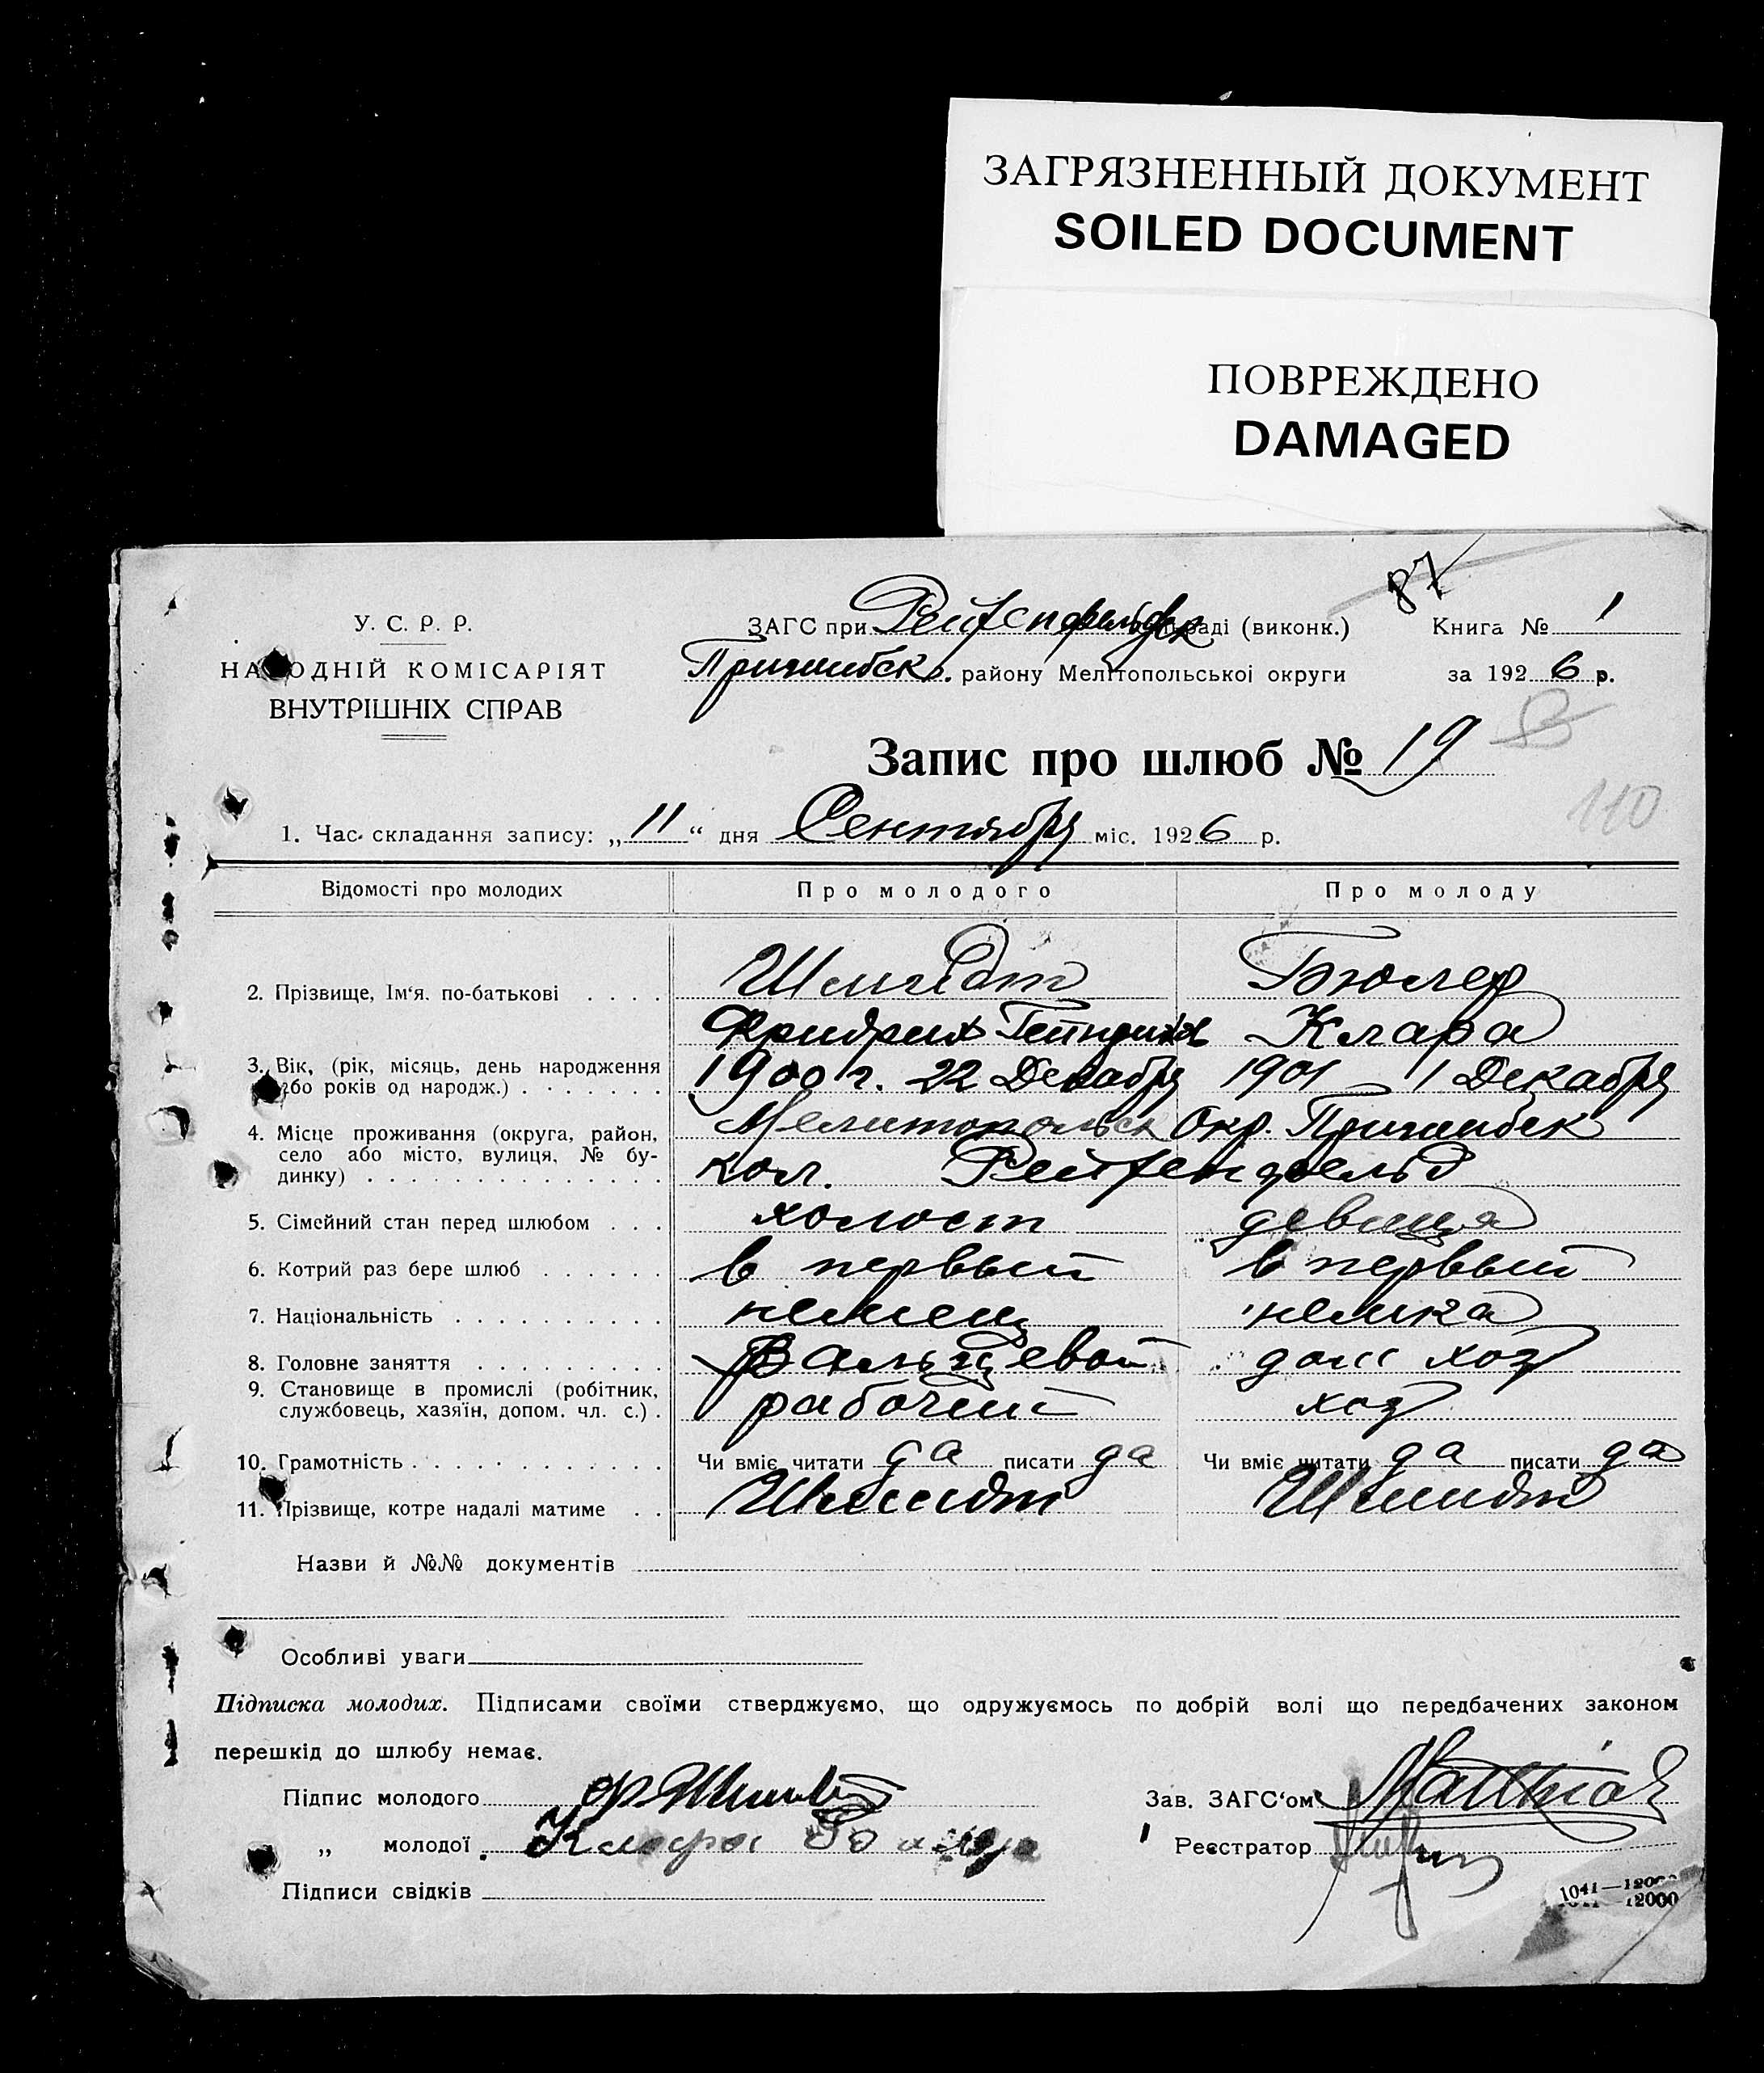 ЗАГРЯЗНЕННЫЙ ДОКУМЕНТ
SOILED DOCUMENT
ПОВРЕЖДЕНО
DAMAGED
87
У. С. Р. Р.
НАРОДНІЙ КОМІСАРІЯТ
ВНУТРІШНІХ СПРАВ
ЗАГС при Рейфенфельдск раді (виконк.)
Пришибск. району Мелітопольської округи
Книга № 1
за 1926 р.
Запис про шлюб № 19
110
1. Час складання запису: „11“ дня Сентября міс. 1926 р.
Відомості про молодих Про молодого Про молоду
2. Прізвище, Ім'я. по-батькові . . . . Шмидт Бюлер
Фридрих Гейнрихов Клара
3. Вік, (рік, місяць, день народження або років од народж.) . . . . . . . 1900 г. 22 Декабря 1901 – 1 Декабря
4. Місце проживання (округа, район, село або місто, вулиця, № будинку) . . . . . . . . . . . . . . Мелитопольск Окр. Пришибск
кол. Рейфенфельд
5. Сімейний стан перед шлюбом . . . холост девица
6. Котрий раз бере шлюб . . . . . . в первый в первый
7. Національність . . . . . . . . . . немец немка
8. Головне заняття . . . . . . . . . Вальцевой дом хоз
9. Становище в промислі (робітник, службовець, хазяїн, допом. чл. с.) . рабочий хоз
10. Грамотність . . . . . . . . . . . . Чи вміє читати да писати да Чи вміє читати да писати да
11. Прізвище, котре надалі матиме . . Шмидт Шмидт
Назви й №№ документів
Особливі уваги
Підписка молодих. Підписами своїми стверджуємо, що одружуємось по добрій волі що передбачених законом
перешкід до шлюбу немає.
Підпис молодого Ф. Шмидт
Зав. ЗАГС'ом Matthias
„ молодої Клара
Реєстратор
Підписи свідків
1041—12000
12000